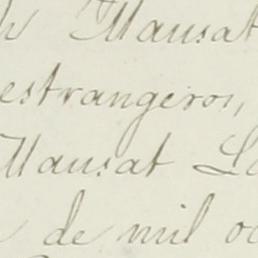 Mausat
estrangeros,
Mausat
de mil